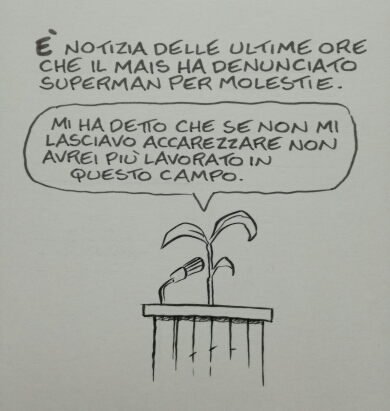 È NOTIZIA DELLE ULTIME ORE
CHE IL MAIS HA DENUNCIATO
SUPERMAN PER MOLESTIE.
MI HA DETTO CHE SE NON MI
LASCIAVO ACCAREZZARE NON
AVREI PIÙ LAVORATO IN
QUESTO CAMPO.